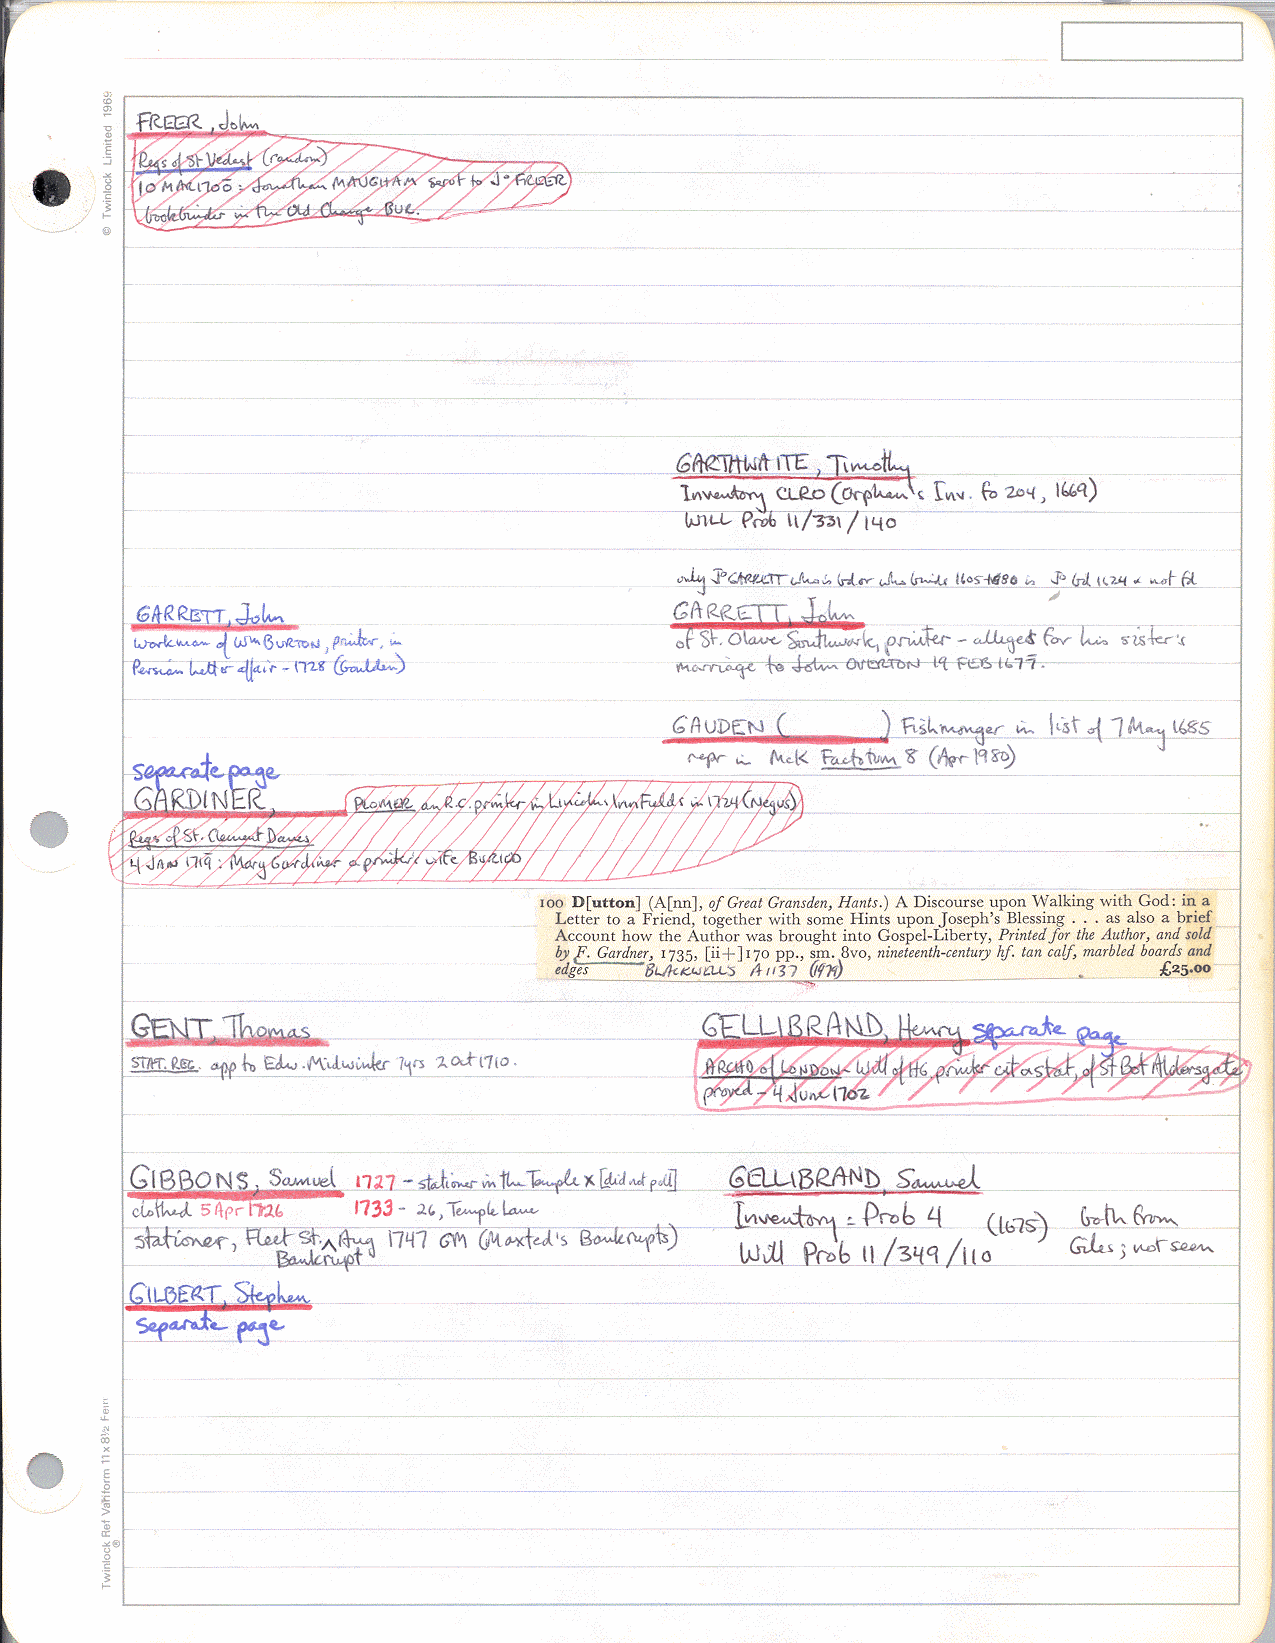 © Twinlock Limited 1969
FREER, John
Regs of St Vedast (random)
10 MAR 1700: Jonathan MAUGHAM servt to Jº FREER
bookbinder in the Old Change BUR.
GARTHWAITE, Timothy
Inventory CLRO (Orphan's Inv. fo 204, 1669)
WILL Prob 11/331/140
only Jº GARRETT who is bd or who binds 1605-1680 is Jº bd 1624 & not fd
GARRETT, John
workman of Wm BURTON, printer, in
Persian Letter affair - 1728 (Goulden)
GARRETT, John
of St. Olave Southwark, printer - alleges for his sister's
marriage to John OVERTON 19 FEB 1677.
GAUDEN ( ) Fishmonger in list of 7 May 1685
repr in McK Factotum 8 (Apr 1980)
separate page
GARDINER, PLOMER an R.C. printer in Lincolns Inn Fields in 1724 (Negus)
Regs of St. Clement Danes
4 JAN 1719: Mary Gardiner a printer's wife BURIED
100 D[utton] (A[nn], of Great Gransden, Hants.) A Discourse upon Walking with God: in a
Letter to a Friend, together with some Hints upon Joseph's Blessing . . . as also a brief
Account how the Author was brought into Gospel-Liberty, Printed for the Author, and sold
by F. Gardner, 1735, [ii+]170 pp., sm. 8vo, nineteenth-century hf. tan calf, marbled boards and
edges BLACKWELLS A1137 (1979) £25.00
GENT, Thomas
STAT. REG. app to Edw. Midwinter 7yrs 2 Oct 1710.
GELLIBRAND, Henry separate page
ARCHD of LONDON - Will of HG, printer cit & stat, of St Bot Aldersgate
proved - 4 June 1702
GIBBONS, Samuel 1727 - stationer in the Temple x [did not poll]
clothed 5 Apr 1726 1733 - 26, Temple Lane
stationer, Fleet St. ^ Aug 1747 GM (Maxted's Bankrupts)
Bankrupt
GELLIBRAND, Samuel
Inventory: Prob 4 (1675) both from
Will Prob 11/349/110 Giles; not seen
GILBERT, Stephen
Separate page
Twinlock Ref Variform 11 x 8½ Feint
®